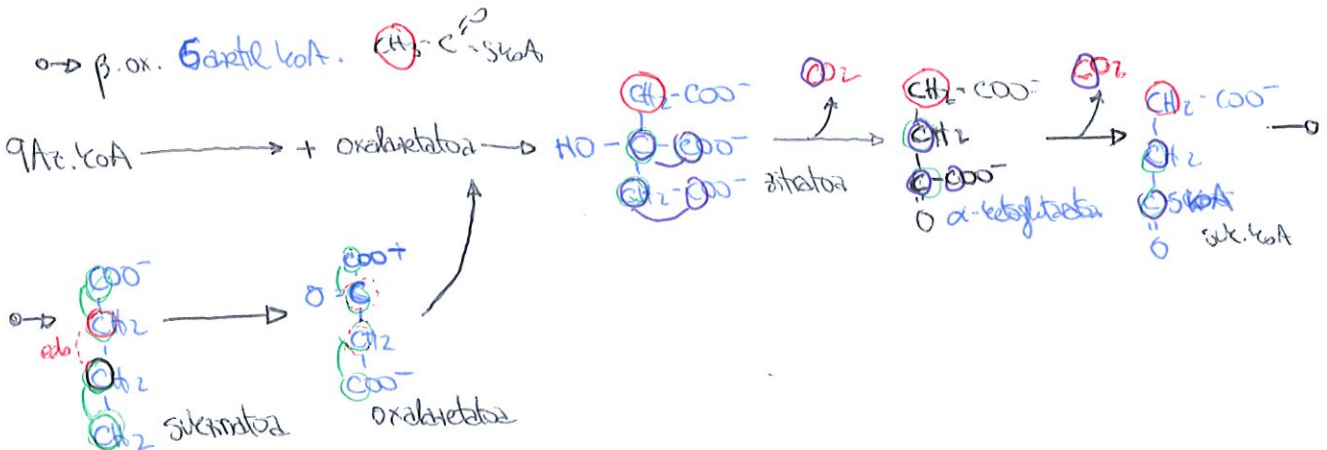 β.ox. 5 azetil koA. CH3-C=O-SkoA
9Az.koA + oxalazetatoa
HO-C-COO⁻
CH2-COO⁻
CH2-COO⁻
zitratoa
CO2
CH2-COO⁻
CH2
C-COO⁻
O α-ketoglutaratoa
CO2
CH2-COO⁻
CH2
C SkoA
O
suk.koA
COO⁻
CH2
edo
CH2
CH2 sukzinatoa
COO+
O=C
CH2
COO⁻
oxalazetatoa